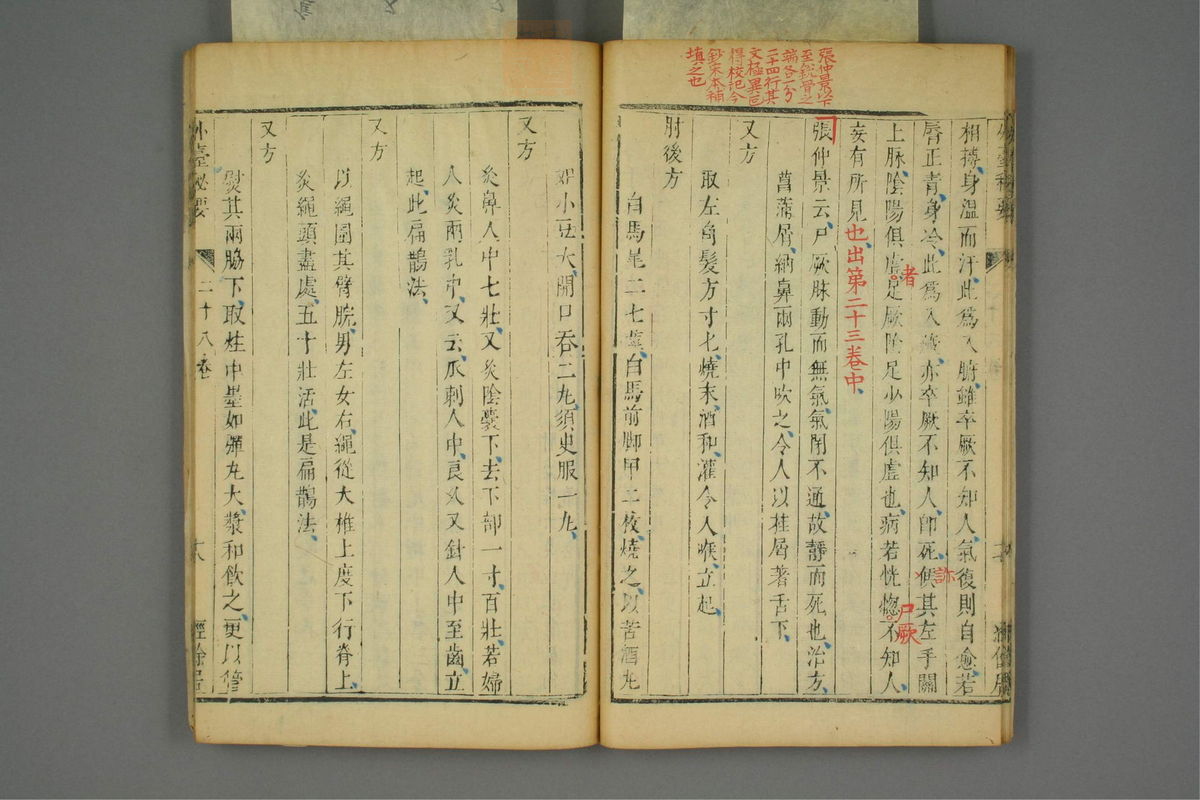 張仲景以下
至銳骨之
端各一分
二十四行其
文極異宜
得校記今
鈔宋本補
填之也
相搏身溫而汗此為入腑雖卒厥不知人氣復則自愈若
唇正青身冷此為入臟亦卒厥不知人即死候其左手關
訴
上脉陰陽俱虛足厥陰足少陽俱虛也病若恍惚不知人
者
尸厥
妄有所見也出第二十三卷中
張仲景云尸厥脉動而無氣氣閉不通故靜而死也治方
菖蒲屑納鼻兩孔中吹之令人以桂屑著舌下
又方
取左角髮方寸匕燒末酒和灌令人喉立起
肘後方
白馬尾二七莖白馬前脚甲二枚燒之以苦酒丸
如小豆大開口吞二丸須史服一丸
又方
灸鼻人中七壯又灸陰囊下去下部一寸百壯若婦
人灸兩乳中又云爪刺人中良久又針人中至齒立
起此扁鵲法
又方
以繩圍其臂腕男左女右繩從大椎上度下行脊上
灸繩頭盡處五十壯活此是扁鵲法
又方
熨其兩脇下取竈中墨如彈丸大漿和飲之更以管
外臺秘要
二十八卷
十八
經餘居